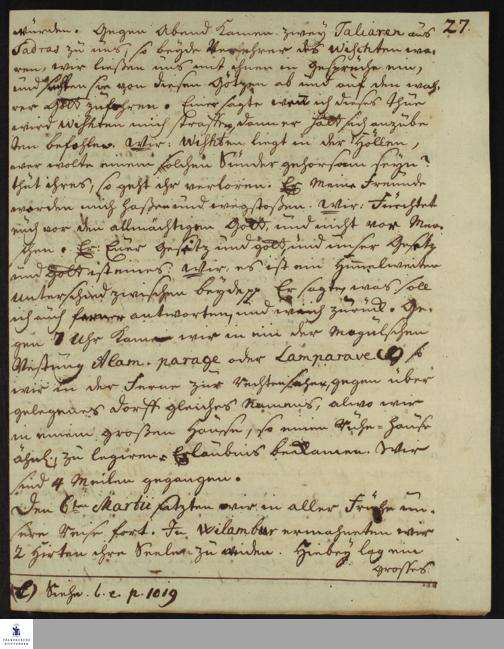 27.
würden. Gegen Abend kamen zwey Taliaren aus
Sadras zu uns, so beyde Verehrer des Wischten wa-
ren, wir ließen uns mit ihnen in Gespräche ein,
und suchten sie von diesen Götzen ab und auf den wah-
rer Gott zuführen. Einer sagte wen ich dieses thue
wird Wischten mich straffen, denn er hätt sich anzube
ten befohlen. Wir: Wischten liegt in der Höllen,
wer wolte einem solchen Sünder gehorsam seyn?
thut ihres, so geht ihr verloren. Er Meine Freunde
werden mich hassen und wegstoßen. Wir: Fürchtet
euch vor den allmächtigen Gott, und nicht vor Men-
schen. Er: Euer Gesetz und Gott und unser Gesetz
und Gott ist eines. Wir: es ist ein Himmelweiter
Unterschied zwischen beyden. Er sagte, was soll
ich auch ferner antworten, und wich zurück. Ge-
gen 7 Uhr kamen wir in ein der Mogulschen
Vestung Alam. parage oder Lamparave (C) so
wir in der Ferne zur Rechten sahen, gegen über
gelegenes Dorff gleiches Namens, alwo wir
in einem großen Hause, so einem Ruhe-Hause
ähnl., zu logiren Erlaubnis bekamen. Wir
sind 4 Meilen gegangen.
Den 6ten Martii setzten wir in aller Frühe un-
sere Reise fort. In Wilambur ermahneten wir
2 Hirten ihre Seelen zu retten. Hiebey lag ein
grosses
(C) Siehe. l. c. p. 1019
FRANCKESCHE
STIFTUNGEN